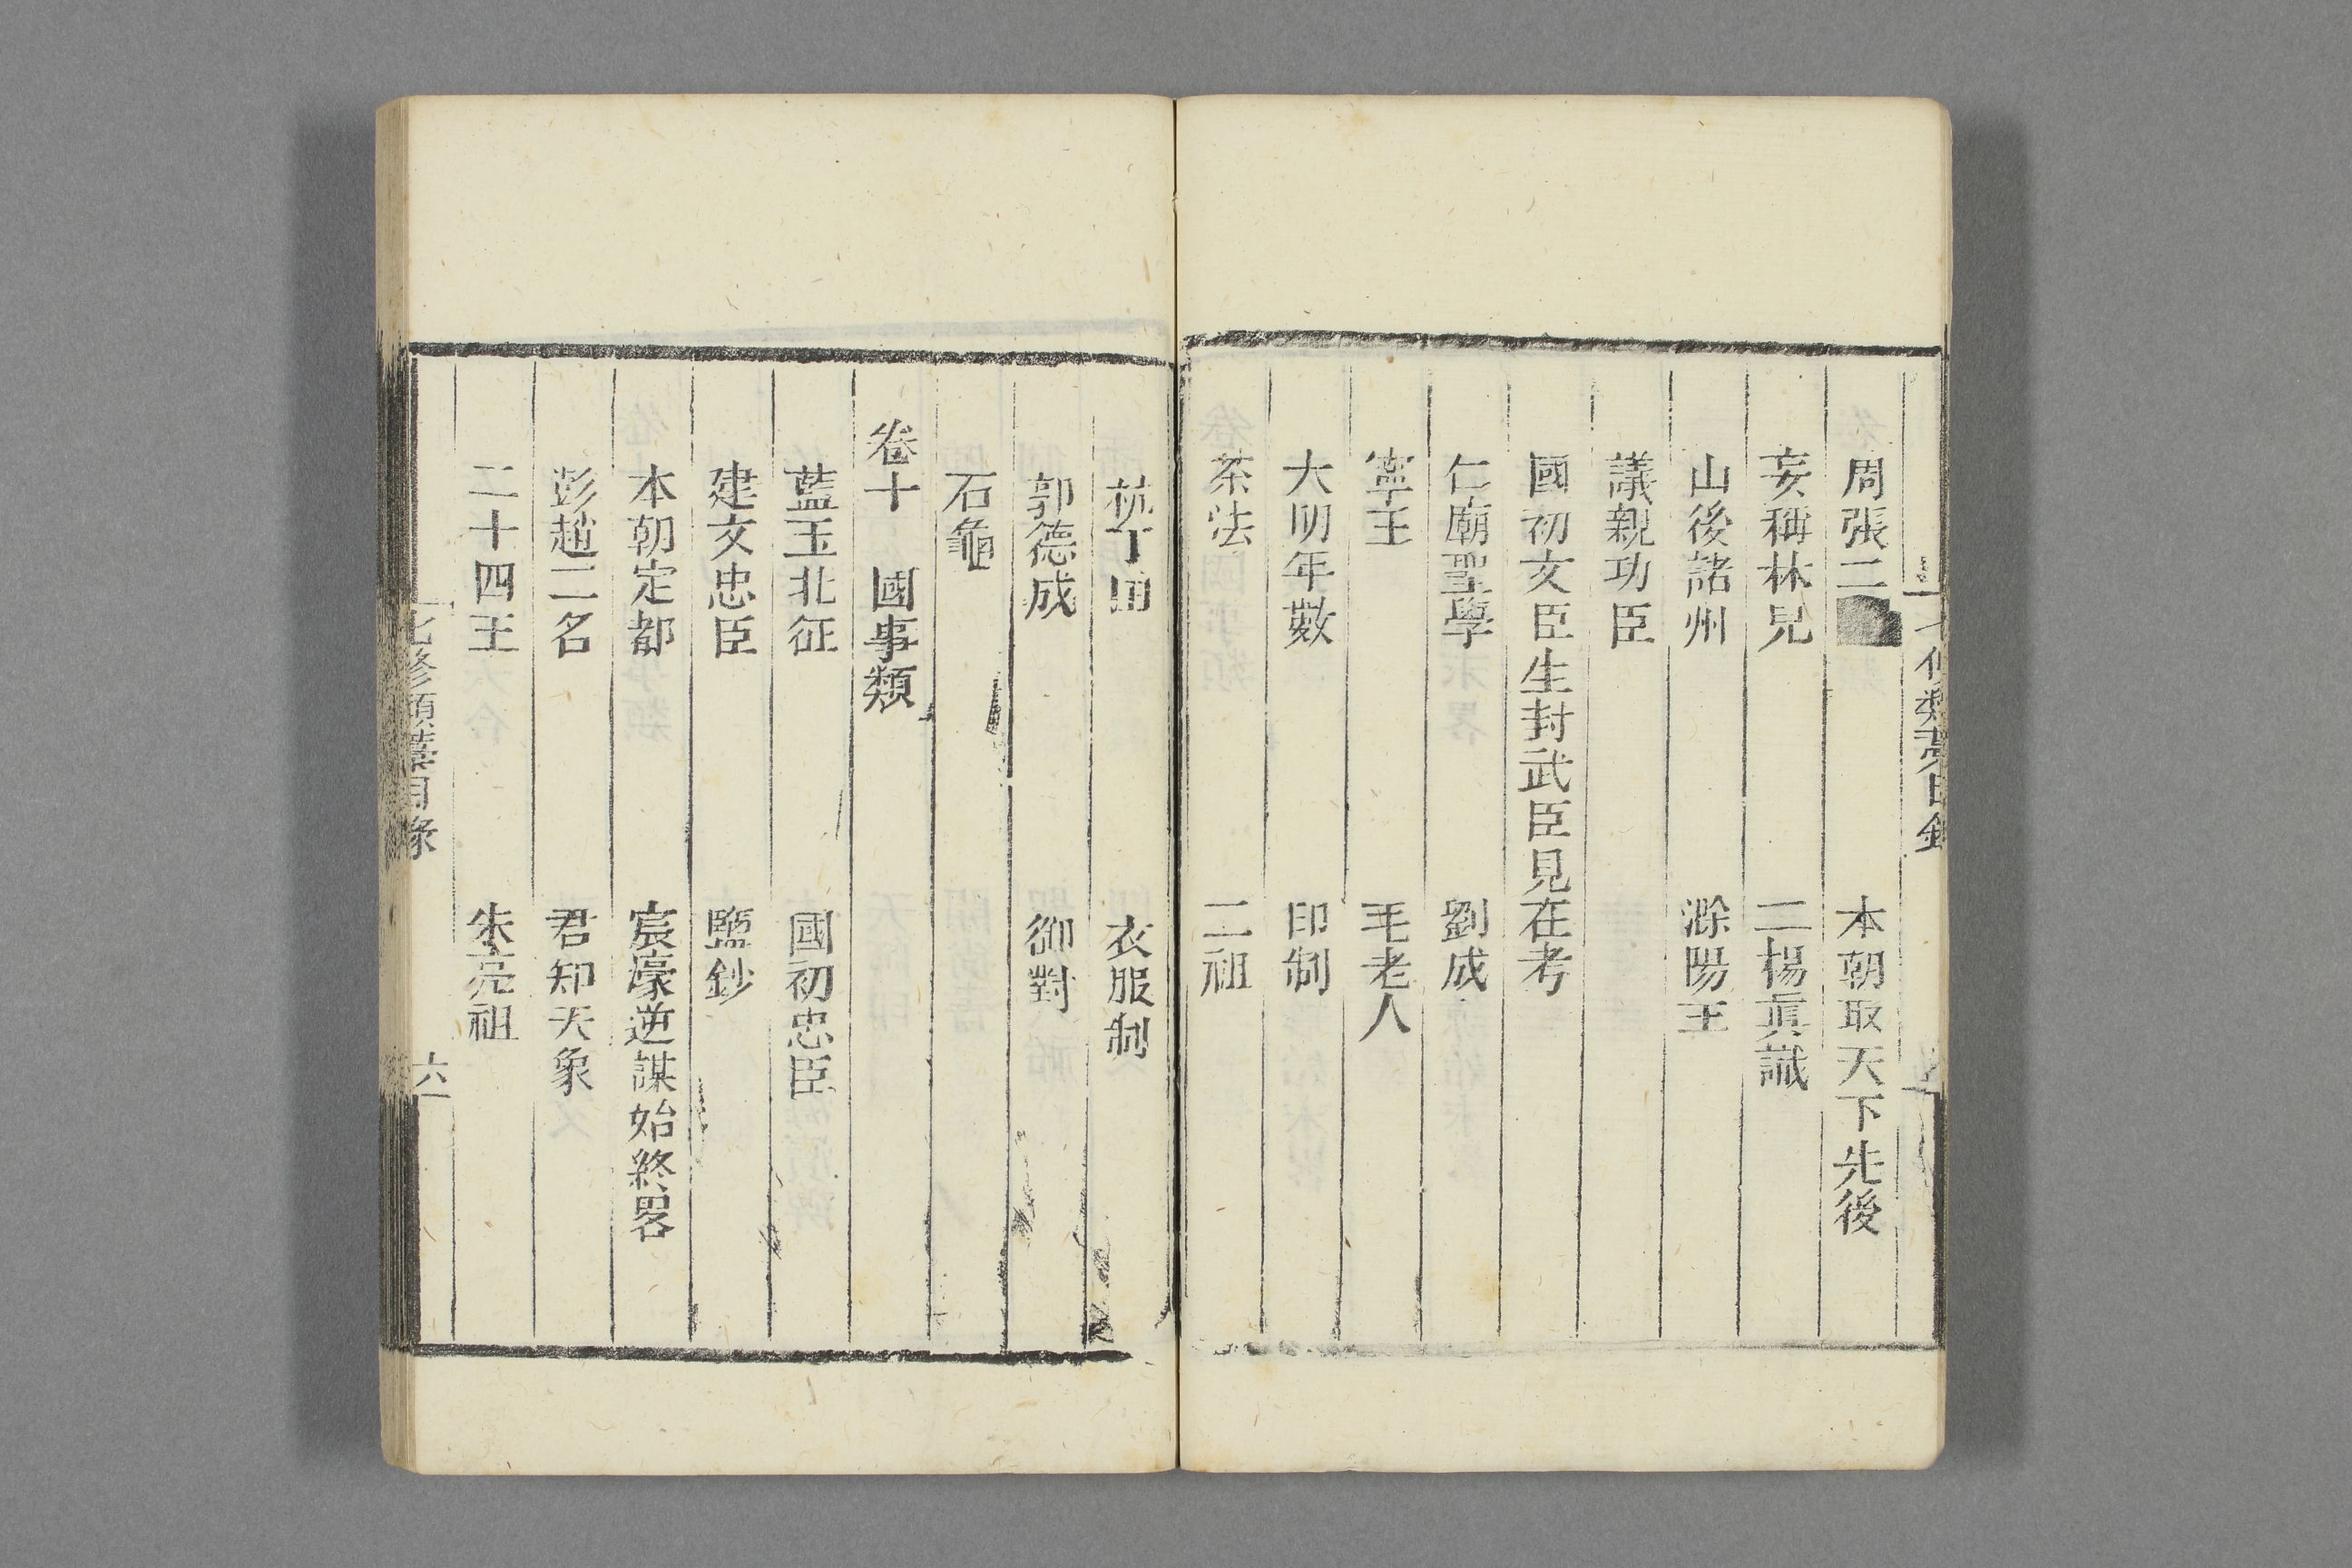 周張二 本朝取天下先後
妄稱林兒 二楊眞識
山後諸州 滁陽王
議親功臣
國初文臣生封武臣見在考
仁廟聖學 劉成
寧王 毛老人
大明年數 印制
茶法 二祖
衣服制
郭德成 御對
石龜
卷十 國事類
藍玉北征 國初忠臣
建文忠臣 鹽鈔
本朝定都 宸濠逆謀始終畧
彭趙二名 君知天象
二十四王 朱亮祖
七修類藁目錄 六